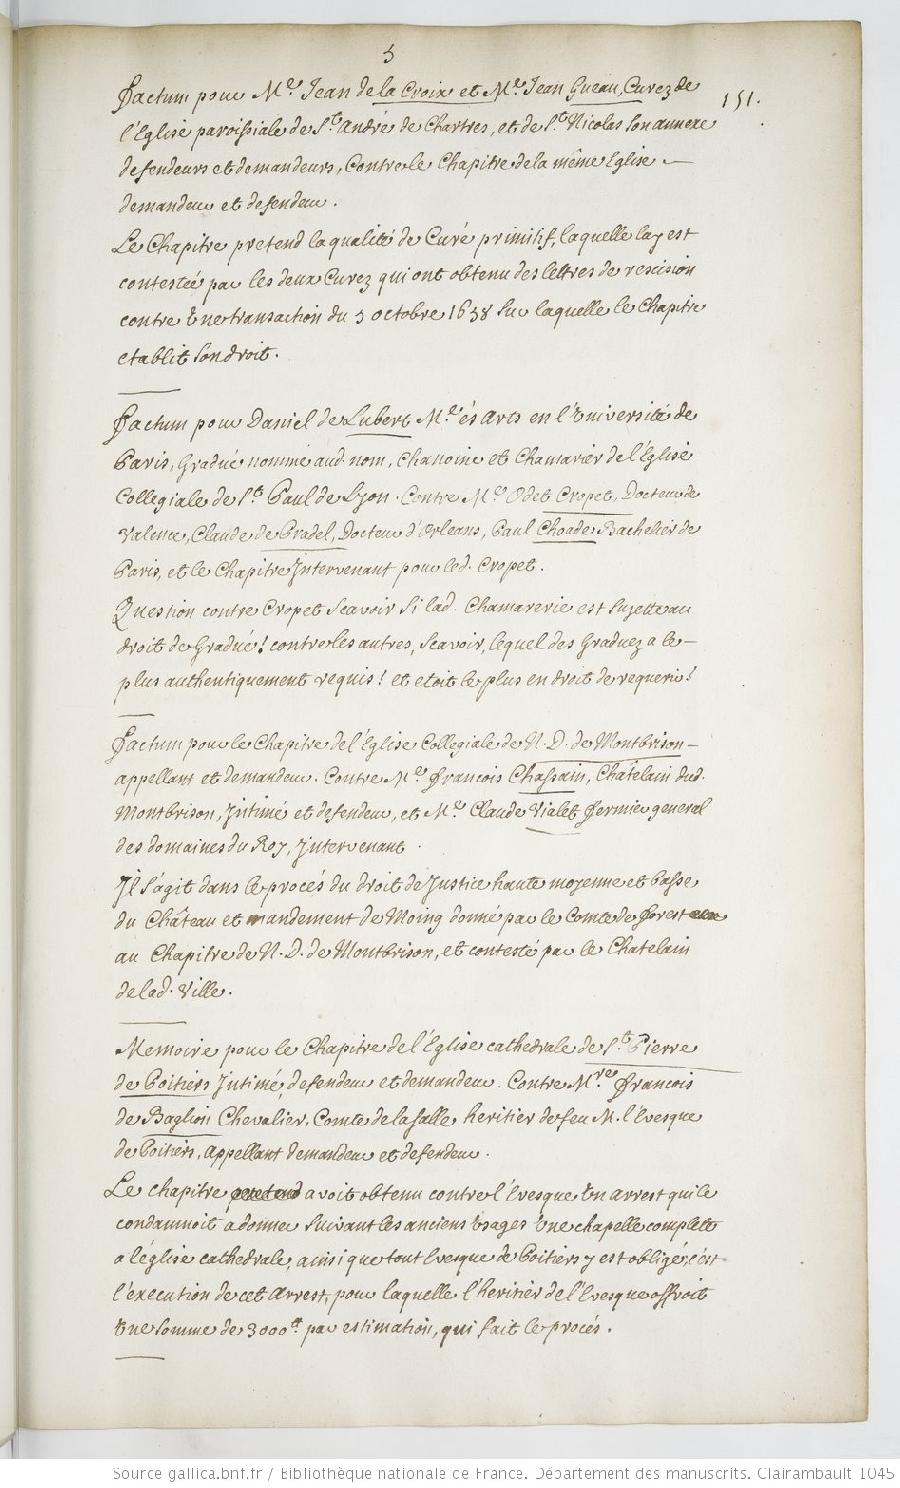 5
151.
Factum pour Me. Jean de la Croix et Me. Jean Gueau, Curez de
l'Eglise paroissiale de St. André de Chartres, et de St. Nicolas son annexe
defendeurs et demandeurs, Contre le Chapitre de la même Eglise —
demandeur et defendeur.
Le Chapitre pretend la qualité de Curé primitif, laquelle lay est
contestée par les deux Curez qui ont obtenu des lettres de rescision
contre Une transaction du 5 octobre 1638 sur laquelle le Chapitre
etablit son droit.
Factum pour Daniel de Lubert Me. és Arts en l'Université de
Paris, Gradué nommé aud. nom, Chanoine et Chamarier de l'Eglise
Collegiale de St. Paul de Lyon. Contre Me. Odet Cropet, Docteur de
Valence, Claude de Pradel, Docteur d'Orleans, Paul Choade Bachelier de
Paris, et le Chapitre Intervenant pour led. Cropet.
Question contre Cropet Scavoir Si lad. Chamarerie est Sujette au
droit de Gradué! contre les autres, Scavoir, lequel des Graduez a le —
plus authentiquement requis! et etoit le plus en droit de requerir!
Factum pour le Chapitre de l'Eglise Collegiale de N. D. de Montbrison —
appellant et demandeur. Contre Me. François Chassain, Châtelain dud.
Montbrison, Intimé et defendeur, et Me. Claude Vialet Fermier general
des domaines du Roy, Intervenant.
Il s'agit dans le procés du droit de Justice haute moyenne et basse
du Château et mandement de Moing donné par le Comte de Forest
au Chapitre de N. D. de Montbrison, et contesté par le Chatelain
de lad. Ville.
Memoire pour le Chapitre de l'Eglise cathedrale de St. Pierre
de Poitiers Intimé, defendeur et demandeur. Contre Mre. François
de Baglion Chevalier, Comte de la Salle heritier de feu M. l'Evesque
de Poitiers, appellant demandeur et defendeur.
Le chapitre pretend avoit obtenu contre l'Evesque Un arrest qui le
condamnoit a donner suivant les anciens Usages Une chapelle complette
a l'église cathedrale, ainsi que tout Evesque de Poitiers y est obligé; c'est
l'execution de cet Arrest, pour laquelle l'heritier de l'Evesque offroit
Une somme de 3000tt. par estimation, qui fait le procés.
Source gallica.bnf.fr / Bibliothèque nationale de France. Département des manuscrits. Clairambault 1045